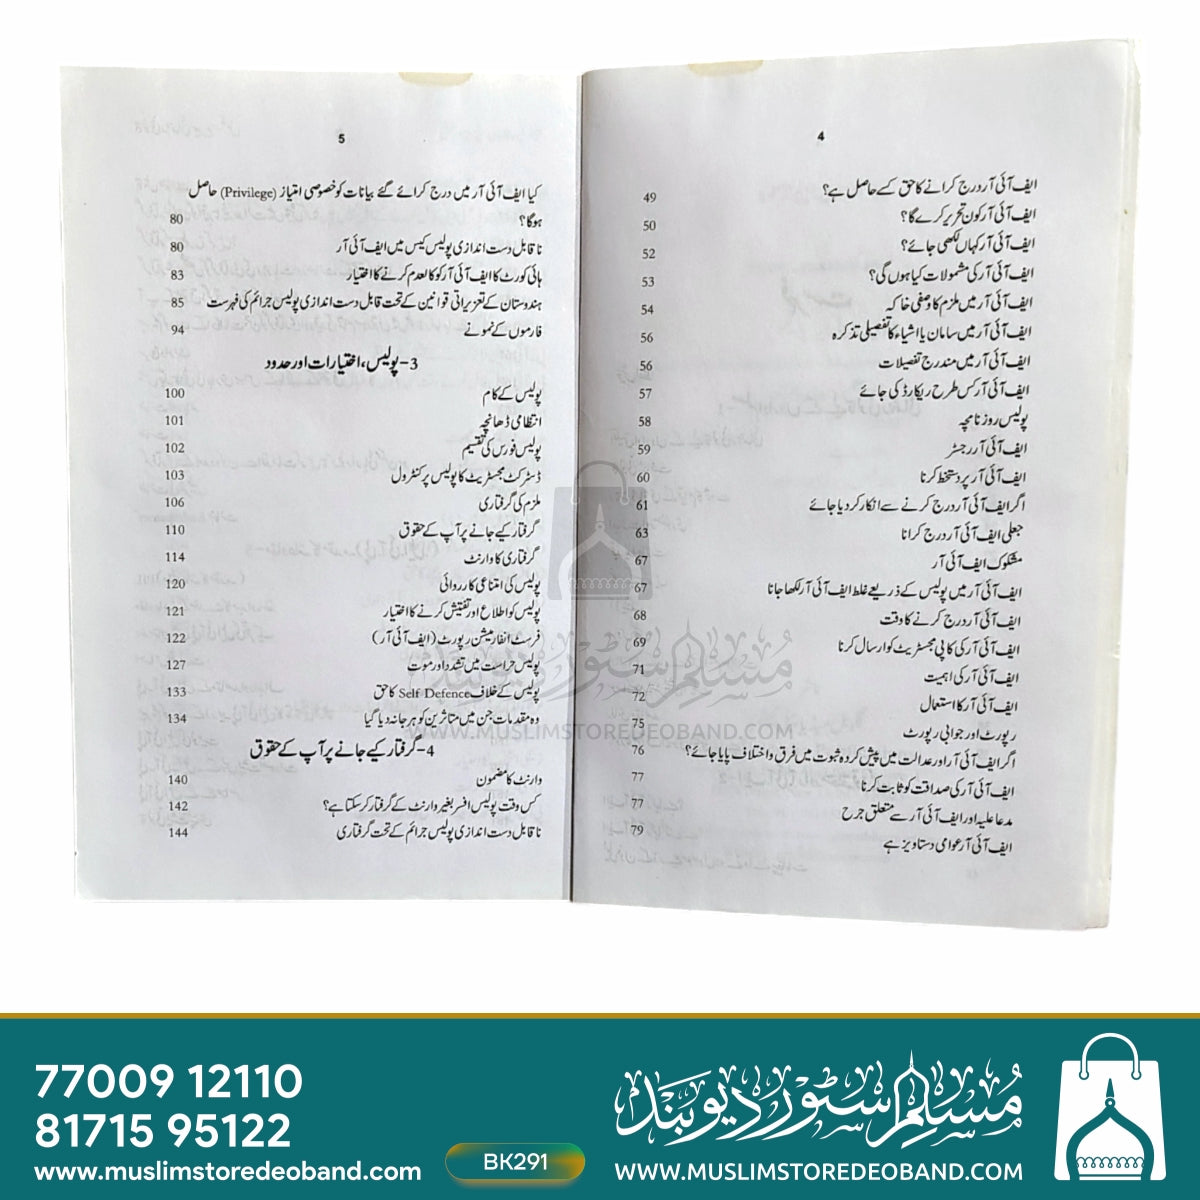 4
ایف آئی آر درج کرانے کا حق کسے حاصل ہے؟ 49
ایف آئی آر کون تحریر کرے گا؟ 50
ایف آئی آر کہاں لکھی جائے؟ 52
ایف آئی آر کی مشمولات کیا ہوں گی؟ 53
ایف آئی آر میں ملزم کا وصفی خاکہ 54
ایف آئی آر میں سامان یا اشیاء کا تفصیلی تذکرہ 56
ایف آئی آر میں مندرج تفصیلات 56
ایف آئی آر کس طرح ریکارڈ کی جائے 57
پولیس روزنامچہ 58
ایف آئی آر رجسٹر 59
ایف آئی آر پر دستخط کرنا 60
اگر ایف آئی آر درج کرنے سے انکار کر دیا جائے 61
جعلی ایف آئی آر درج کرانا 63
مشکوک ایف آئی آر 67
ایف آئی آر میں پولیس کے ذریعے غلط ایف آئی آر لکھا جانا 67
ایف آئی آر درج کرنے کا وقت 68
ایف آئی آر کی کاپی مجسٹریٹ کو ارسال کرنا 69
ایف آئی آر کی اہمیت 71
ایف آئی آر کا استعمال 72
رپورٹ اور جوابی رپورٹ 75
اگر ایف آئی آر اور عدالت میں پیش کردہ ثبوت میں فرق و اختلاف پایا جائے؟ 76
ایف آئی آر کی صداقت کو ثابت کرنا 77
مدعا علیہ اور ایف آئی آر سے متعلق جرح 77
ایف آئی آر عوامی دستاویز ہے 79
5
کیا ایف آئی آر میں درج کرائے گئے بیانات کو خصوصی امتیاز (Privilege) حاصل
ہوگا؟ 80
ناقابل دست اندازی پولیس کیس میں ایف آئی آر 80
ہائی کورٹ کا ایف آئی آر کو کالعدم کرنے کا اختیار 83
ہندوستان کے تعزیراتی قوانین کے تحت قابل دست اندازی پولیس جرائم کی فہرست 85
فارموں کے نمونے 94
3- پولیس، اختیارات اور حدود
پولیس کے کام 100
انتظامی ڈھانچہ 101
پولیس فورس کی تقسیم 102
ڈسٹرکٹ مجسٹریٹ کا پولیس پر کنٹرول 103
ملزم کی گرفتاری 106
گرفتار کیے جانے پر آپ کے حقوق 110
گرفتاری کا وارنٹ 114
پولیس کی امتناعی کارروائی 120
پولیس کو اطلاع اور تفتیش کرنے کا اختیار 121
فرسٹ انفارمیشن رپورٹ (ایف آئی آر) 122
پولیس حراست میں تشدد اور موت 127
پولیس کے خلاف Self Defence کا حق 133
وہ مقدمات جن میں متاثرین کو ہرجانہ دیا گیا 134
4- گرفتار کیے جانے پر آپ کے حقوق
وارنٹ کا مضمون 140
کس وقت پولیس افسر بغیر وارنٹ کے گرفتار کر سکتا ہے؟ 142
ناقابل دست اندازی پولیس جرائم کے تحت گرفتاری 144
مسلم سٹور دیوبند
WWW.MUSLIMSTOREDEOBAND.COM
77009 12110
81715 95122
www.muslimstoredeoband.com
BK291
مسلم سٹور دیوبند
WWW.MUSLIMSTOREDEOBAND.COM